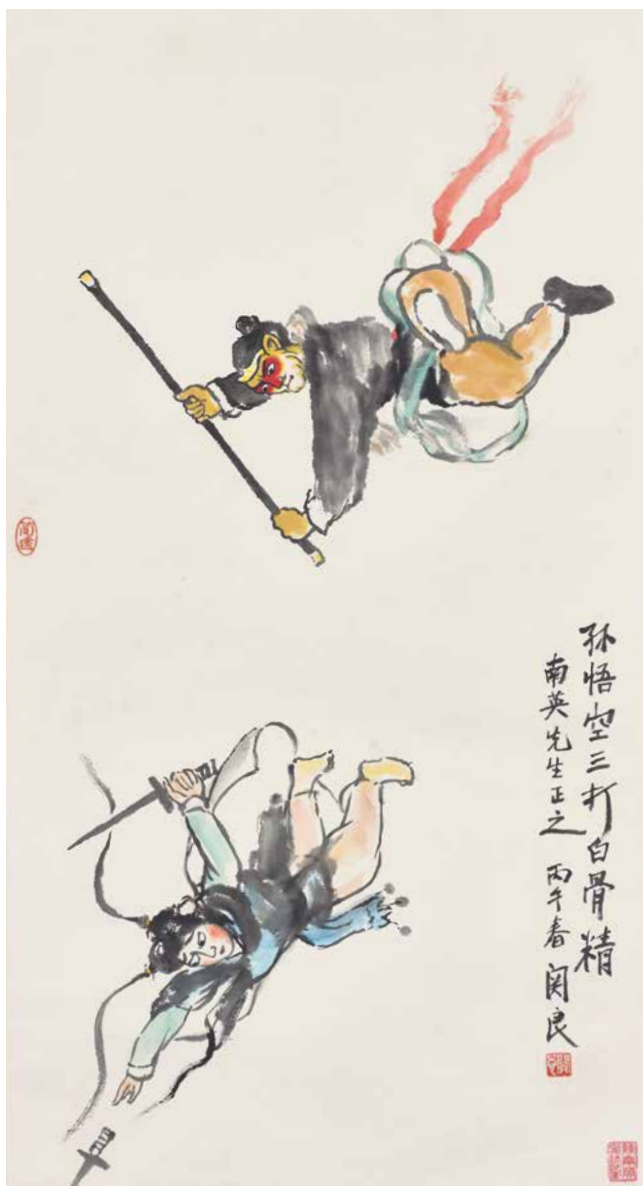 孙悟空三打白骨精
南英先生正之 丙午春 関良